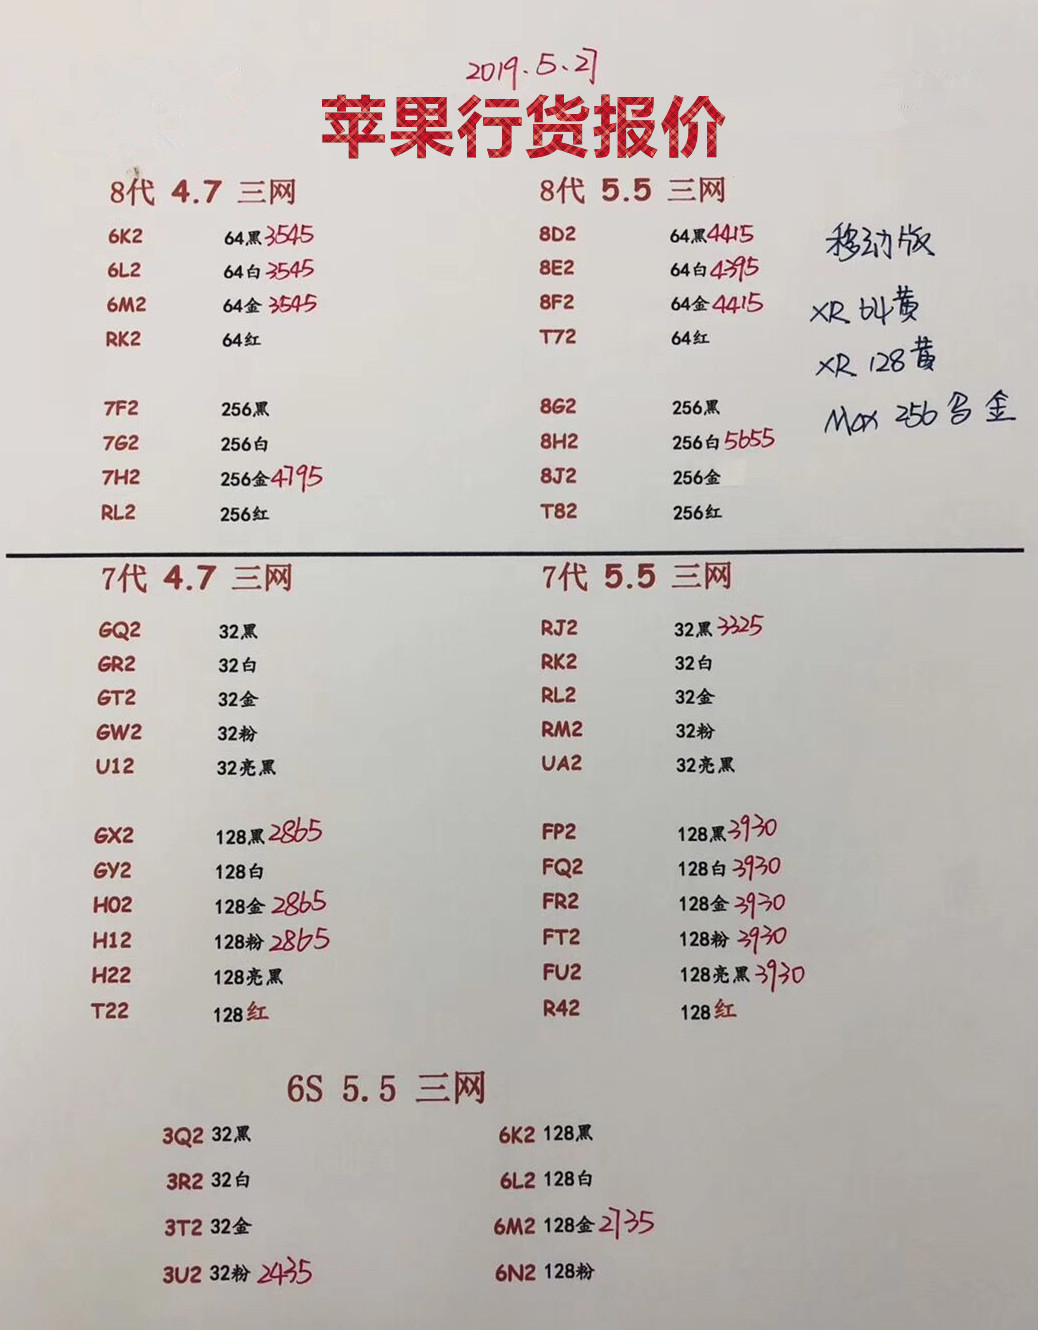 2019.5.27
苹果行货报价
8代 4.7 三网
6K2 64黑 3545
6L2 64白 3545
6M2 64金 3545
RK2 64红
7F2 256黑
7G2 256白
7H2 256金 4795
RL2 256红
8代 5.5 三网
8D2 64黑 4415
8E2 64白 4395
8F2 64金 4415
T72 64红
8G2 256黑
8H2 256白 5655
8J2 256金
T82 256红
移动版
XR 64黄
XR 128黄
Max 256 金
7代 4.7 三网
GQ2 32黑
GR2 32白
GT2 32金
GW2 32粉
U12 32亮黑
GX2 128黑 2865
GY2 128白
H02 128金 2865
H12 128粉 2865
H22 128亮黑
T22 128红
7代 5.5 三网
RJ2 32黑 3325
RK2 32白
RL2 32金
RM2 32粉
UA2 32亮黑
FP2 128黑 3930
FQ2 128白 3930
FR2 128金 3930
FT2 128粉 3930
FU2 128亮黑 3930
R42 128红
6S 5.5 三网
3Q2 32黑
3R2 32白
3T2 32金
3U2 32粉 2435
6K2 128黑
6L2 128白
6M2 128金 2735
6N2 128粉